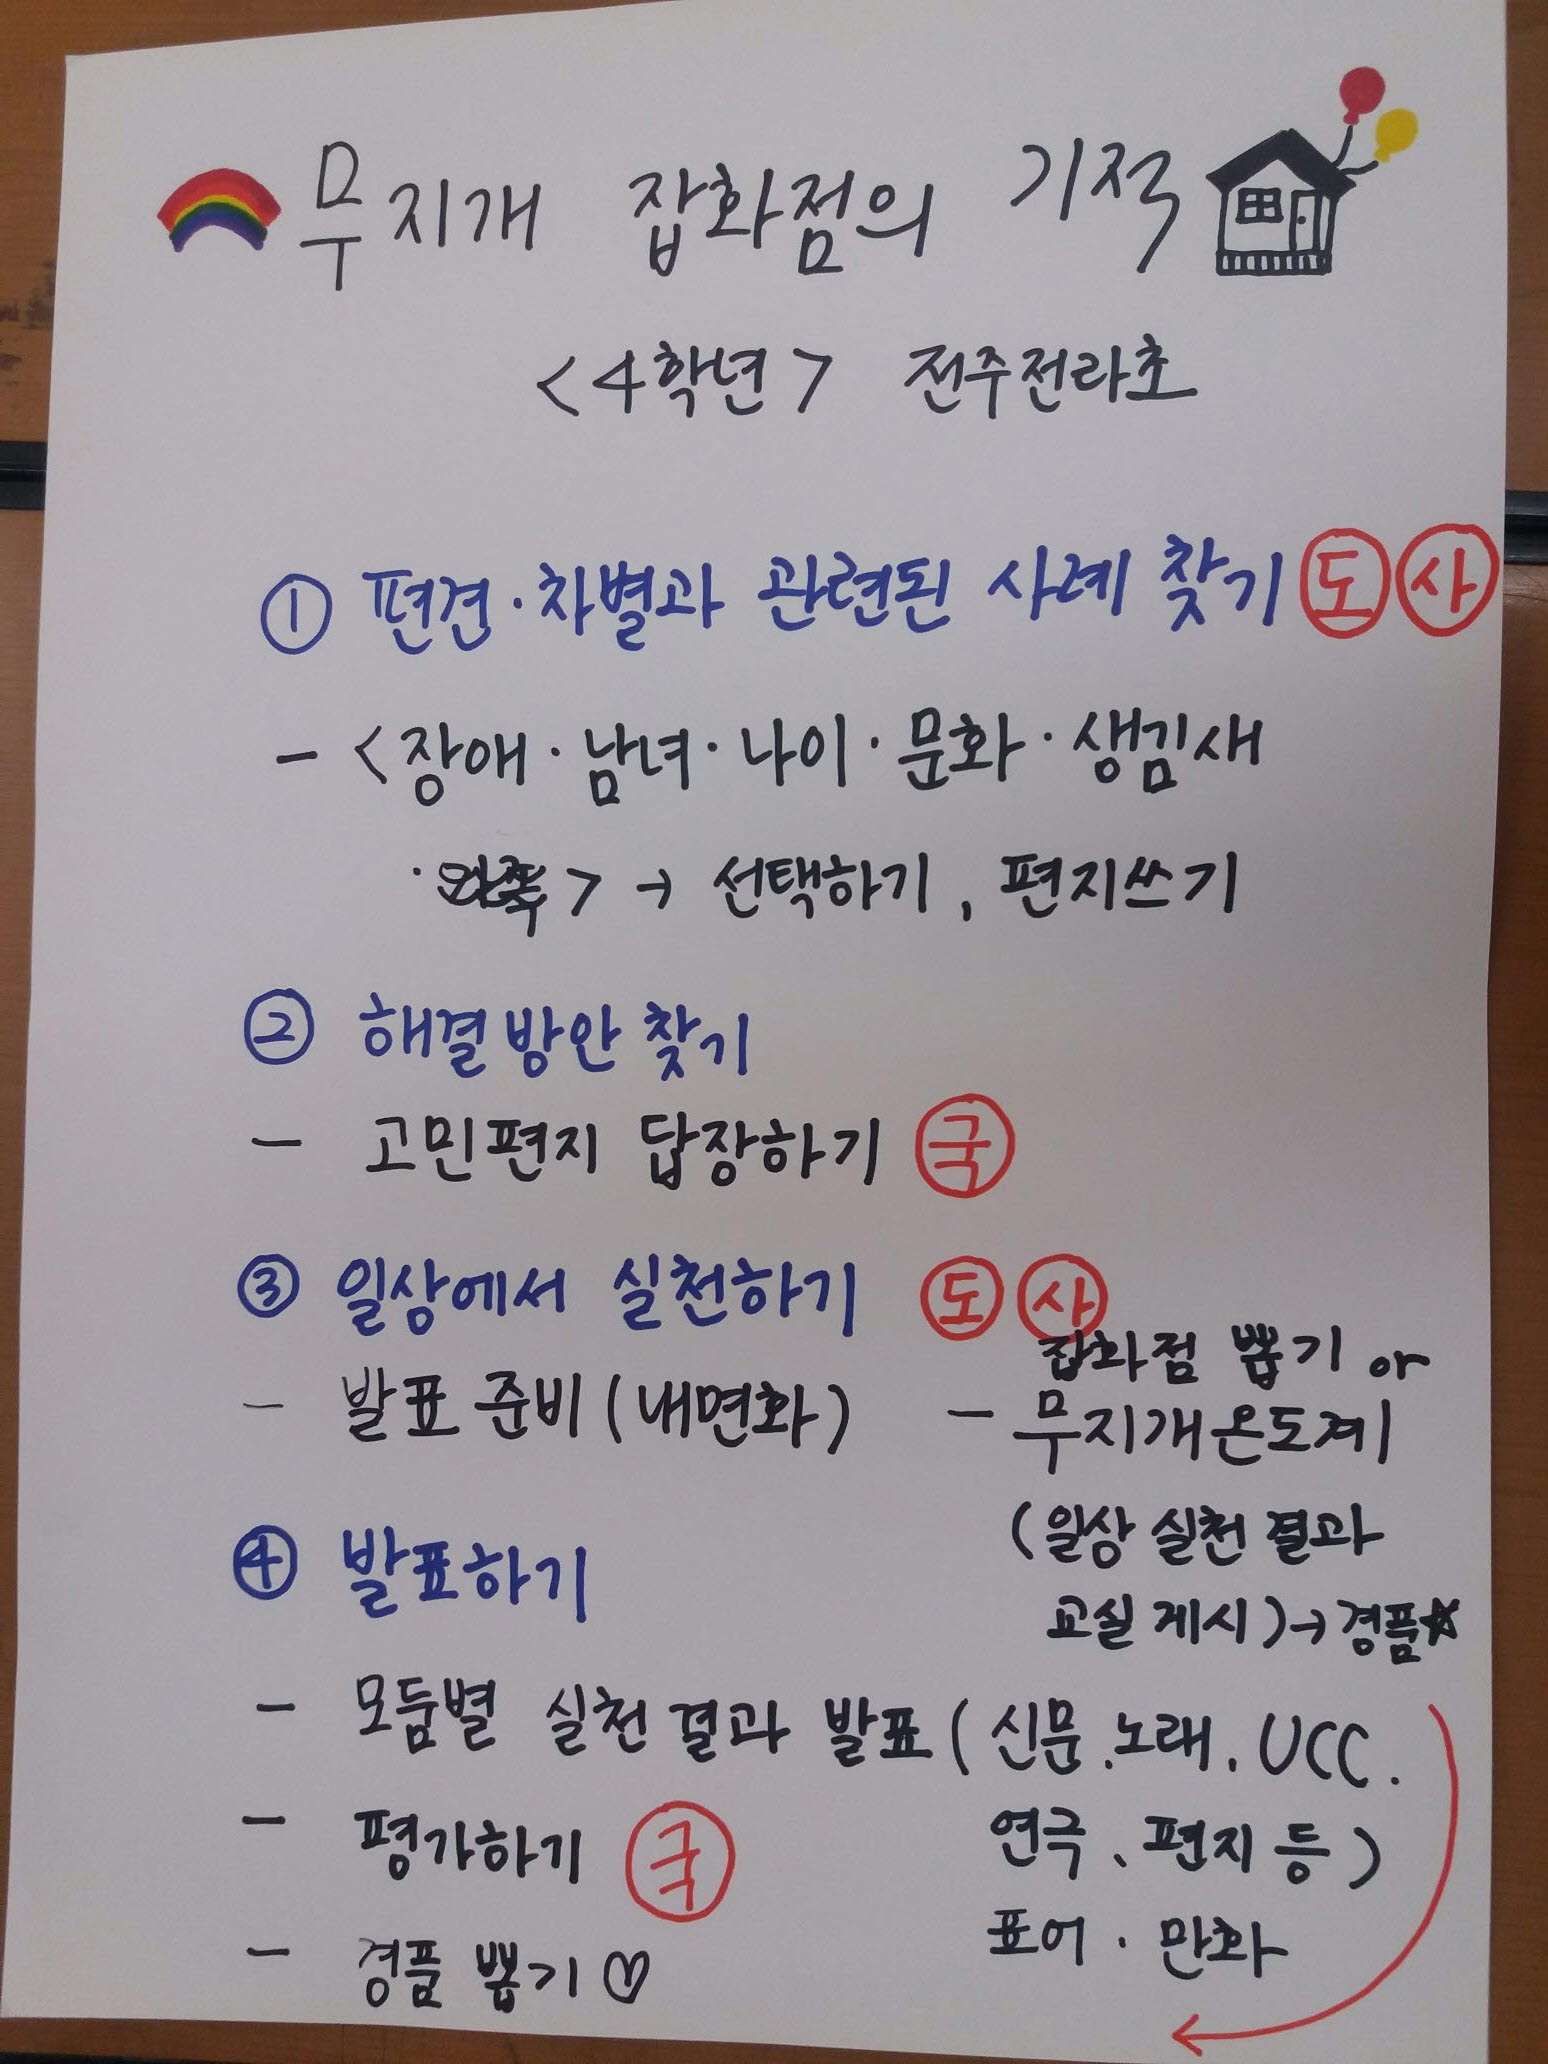 무지개 잡화점의 기적
<4학년> 전주전라초
① 편견·차별과 관련된 사례 찾기 도 사
- <장애·남녀·나이·문화·생김새
· > → 선택하기, 편지쓰기
② 해결방안 찾기
- 고민편지 답장하기 국
③ 일상에서 실천하기 도 사
- 발표 준비 (내면화)
잡화점 뽑기 or
- 무지개온도계
(일상 실천 결과
교실 게시) → 경품☆
④ 발표하기
- 모둠별 실천 결과 발표 (신문.노래.UCC.
연극、편지 등)
표어·만화
- 평가하기 국
- 경품 뽑기♡